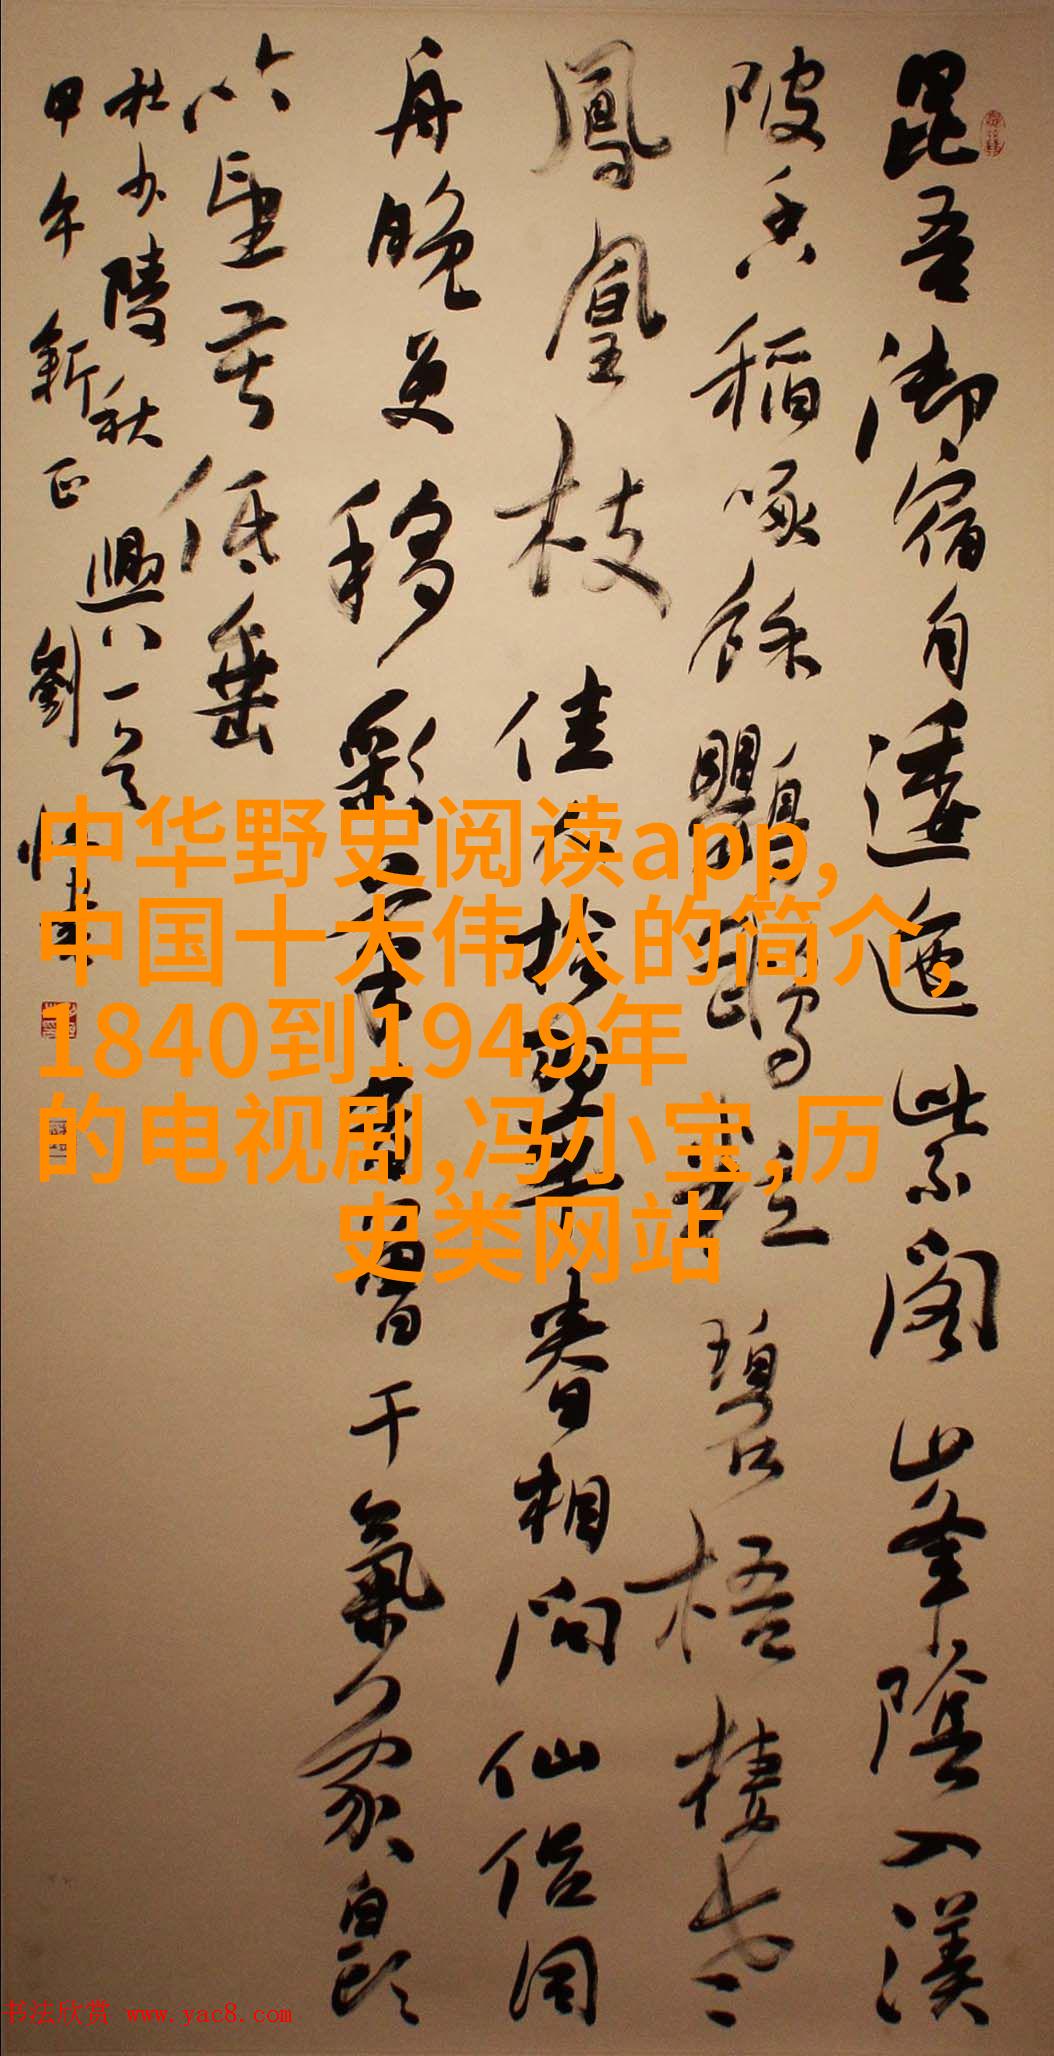 昆吾御宿自逶迤紫閣山峯陰入渼
陂香稻啄餘鸚鵡粒碧梧棲老
鳳凰枝佳人拾翠春相問仙侶同
舟晚更移彩筆昔曾干氣象白頭
吟望苦低垂
杜少陵秋興八一首
甲午新正劉
中华野史阅读app,
中国十大伟人的简介,
1840到1949年
的电视剧,冯小宝,历
史类网站
书法欣赏 www.yac8.com